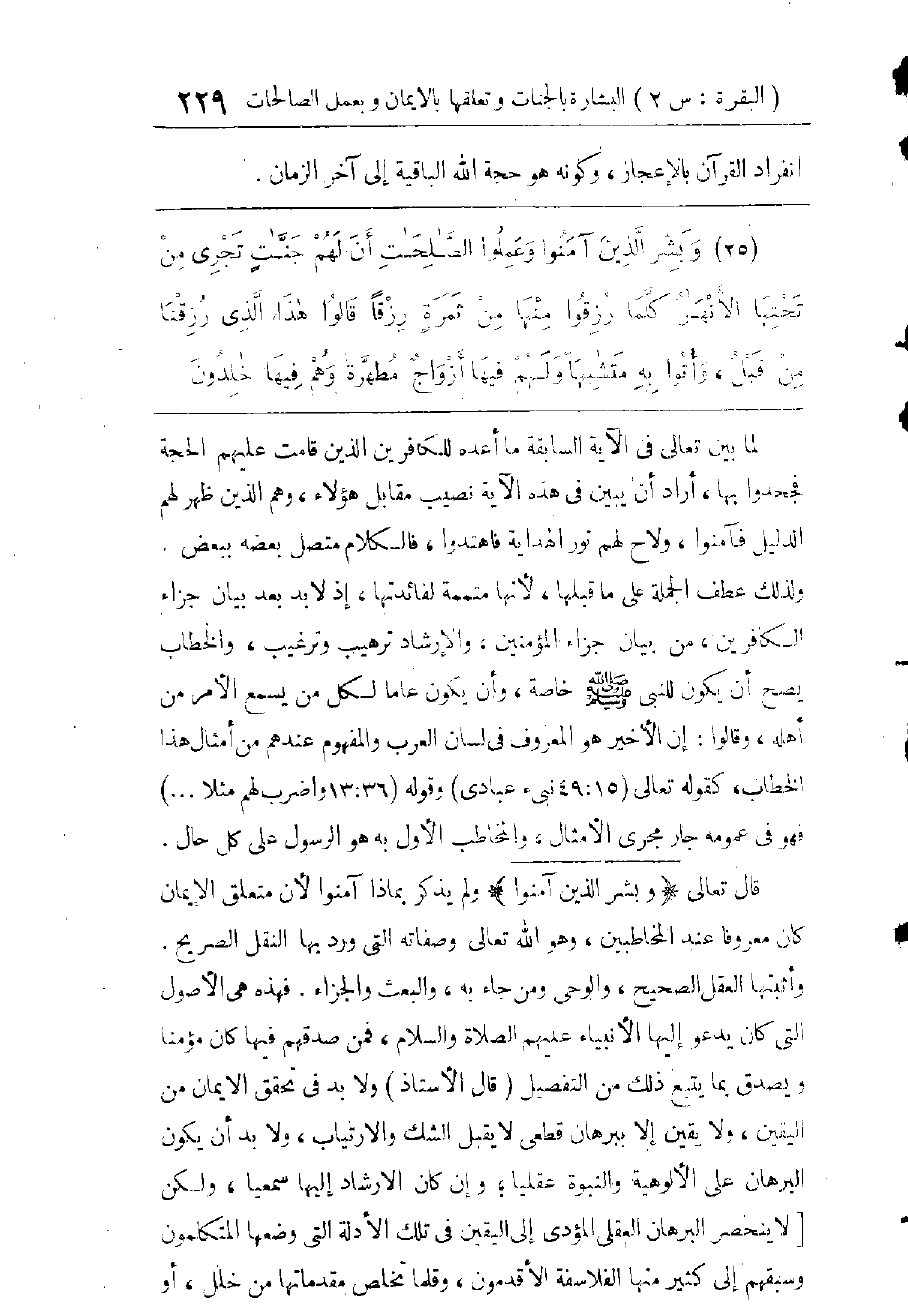 ( البقرة : س ٢ ) البشارة بالجنات وتعلقها بالايمان وبعمل الصالحات ٢٢٩
انفراد القرآن بالإعجاز ، وكونه هو حجة الله الباقية إلى آخر الزمان .
(٢٥) وَبَشِّرِ الَّذِينَ آمَنُوا وَعَمِلُوا الصَّـٰلِحَـٰتِ أَنَّ لَهُمْ جَنَّـٰتٍ تَجْرِى مِنْ
تَحْتِهَا الأَنْهَـٰرُ كُلَّمَا رُزِقُوا مِنْهَا مِنْ ثَمَرَةٍ رِزْقًا قَالُوا هَٰذَا الَّذِى رُزِقْنَا
مِنْ قَبْلُ ، وَأُتُوا بِهِ مُتَشَٰبِهًا وَلَهُمْ فِيهَا أَزْوَاجٌ مُطَهَّرَةٌ وَهُمْ فِيهَا خَٰلِدُونَ
لما بين تعالى فى الآية السابقة ما أعده للكافرين الذين قامت عليهم الحجة
فجحدوا بها ، أراد أن يبين فى هذه الآية نصيب مقابل هؤلاء ، وهم الذين ظهر لهم
الدليل فآمنوا ، ولاح لهم نور الهداية فاهتدوا ، فالكلام متصل بعضه ببعض .
ولذلك عطف الجملة على ما قبلها ، لأنها متممة لفائدتها ، إذ لابد بعد بيان جزاء
الكافرين ، من بيان جزاء المؤمنين ، والإرشاد ترهيب وترغيب ، والخطاب
يصح أن يكون للنبى ﷺ خاصة ، وأن يكون عاما لكل من يسمع الأمر من
أهله ، وقالوا : إن الأخير هو المعروف فى لسان العرب والمفهوم عندهم من أمثال هذا
الخطاب، كقوله تعالى (٤٩:١٥ نبىء عبادى) وقوله (١٣:٣٦ واضرب لهم مثلا ...)
فهو فى عمومه جار مجرى الأمثال ، والمخاطب الأول به هو الرسول على كل حال .
قال تعالى ﴿ وبشر الذين آمنوا ﴾ ولم يذكر بماذا آمنوا لأن متعلق الإيمان
كان معروفا عند المخاطبين ، وهو الله تعالى وصفاته التى ورد بها النقل الصريح .
وأثبتها العقل الصحيح ، والوحى ومن جاء به ، والبعث والجزاء . فهذه هى الأصول
التى كان يدعو إليها الأنبياء عليهم الصلاة والسلام ، فمن صدقهم فيها كان مؤمنا
ويصدق بما يتبع ذلك من التفصيل ( قال الأستاذ ) ولا بد فى تحقق الايمان من
اليقين ، ولا يقين إلا ببرهان قطعى لايقبل الشك والارتياب ، ولا بد أن يكون
البرهان على الألوهية والنبوة عقليا ؛ وإن كان الارشاد إليها سمعيا ، ولكن
[ لا ينحصر البرهان العقلى المؤدى إلى اليقين فى تلك الأدلة التى وضعها المتكلمون
وسبقهم إلى كثير منها الفلاسفة الأقدمون ، وقلما تخلص مقدماتها من خلل ، أو